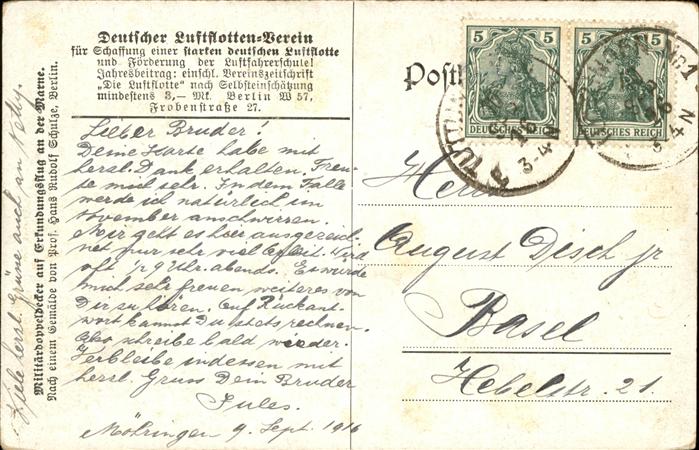 Deutscher Luftflotten-Verein
für Schaffung einer starken deutschen Luftflotte
und Förderung der Luftfahrerschule!
Jahresbeitrag: einschl. Vereinszeitschrift
„Die Luftflotte" nach Selbsteinschätzung
mindestens 3,— Mk. Berlin W 57,
Frobenstraße 27.
Lieber Bruder!
Deine Karte habe mit
herzl. Dank erhalten. Freu-
te mich sehr. In dem Falle
werde ich natürlich im
November anschwirren.
Mir geht es hier ausgezeich-
net nur sehr viel Arbeit. Wird
oft 1/2 9 Uhr abends. Es würde
mich sehr freuen weiteres von
Dir zu hören. Auf Rückant-
wort kannst Du stets rechnen.
Also schreibe bald wieder.
Verbleibe indessen mit
herzl. Gruss Dein Bruder
Jules.
Möhringen 9. Sept. 1916
Viele herzl. Grüsse auch an
Militärdoppeldecker auf Erkundungsflug an der Marne.
Nach einem Gemälde von Prof. Hans Rudolf Schulze, Berlin.
Postk
5 5
DEUTSCHES REICH
5 5
DEUTSCHES REICH
3-4 N
Herrn
August Disch jr
Basel
Hebelstr. 21.